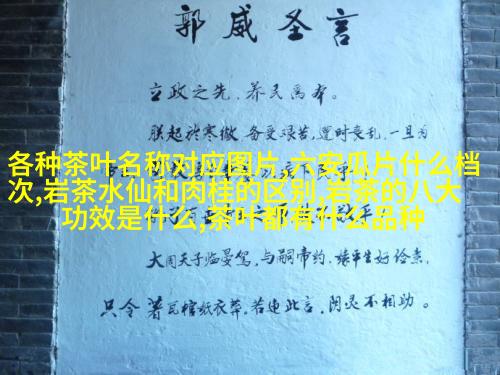 郭威圣言
立政之先,养民爲本。
朕起於寒微 备受艰苦,遭时丧乱,一旦为
各种茶叶名称对应图片,六安瓜片什么档
次,岩茶水仙和肉桂的区别,岩茶的八大
功效是什么,茶叶都有什么品种
大周天子临晏驾,与嗣帝约,缘平生好俭素,
只令著瓦棺纸衣葬。若违此言,阴灵不相助。